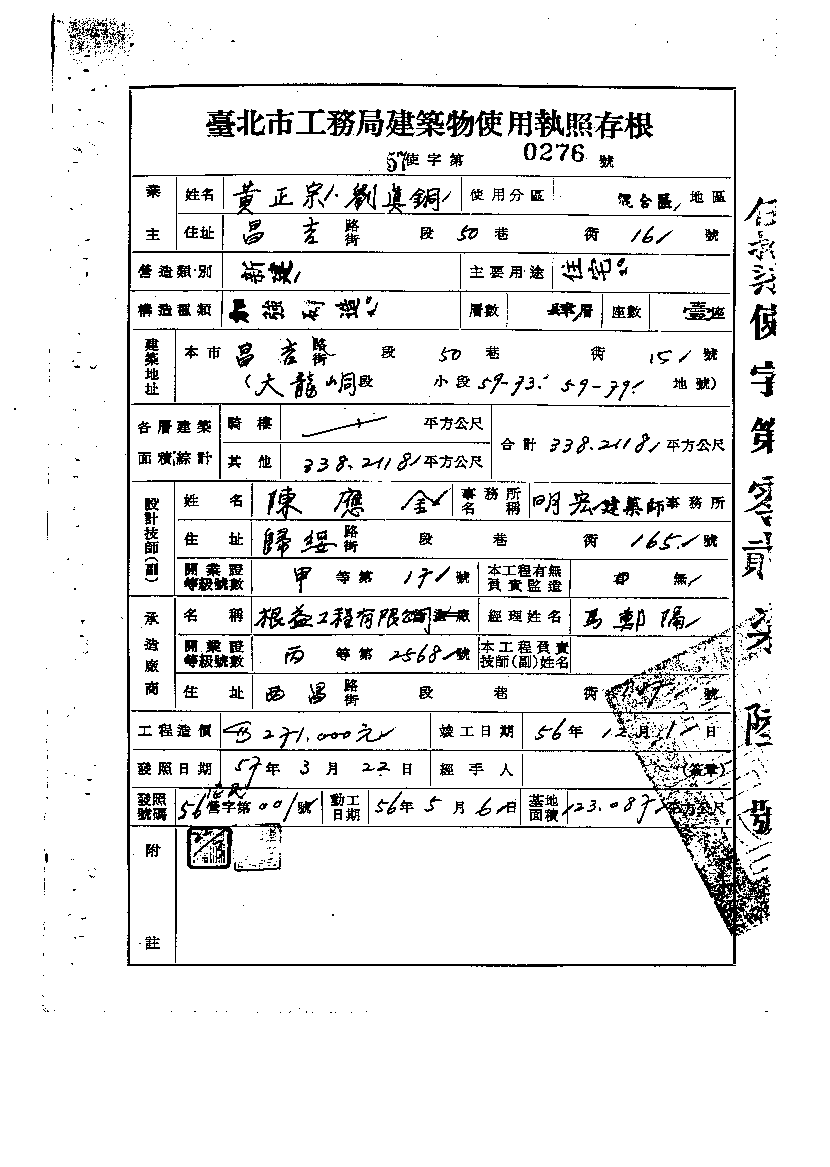 臺北市工務局建築物使用執照存根
57使字第 0276 號
業主 姓名 黃正宗 劉真銅 使用分區 混合區 地區
住址 昌吉 路街 段 50 巷 街 16 號
營造類別 新建 主要用途 住宅
構造種類 加強 造 層數 肆層 座數 壹座
建築地址 本市 昌吉 路街 段 50 巷 街 15 號
(大龍峒段 小段 59-73 59-79 地號)
各層建築面積綜計 騎樓 平方公尺 合計 338.2118 平方公尺
其他 338.2118 平方公尺
設計技師(副) 姓名 陳應金 事務所名稱 明宏建築師事務所
住址 歸綏 路街 段 巷 街 165 號
開業證等級號數 甲 等第 171 號 本工程有無負責監造 無
承造廠商 名稱 根益工程有限公司 營造廠 經理姓名 馬鄭
開業證等級號數 丙 等第 2568 號 本工程負責技師(副)姓名
住址 西昌 路街 段 巷 街 號
工程造價 271.000元 竣工日期 56年12月1日
發照日期 57年3月22日 經手人 (簽章)
發照號碼 56 營字第001號 動工日期 56年5月6日 基地面積 123.087 平方公尺
附註
使字第零貳柒陸號